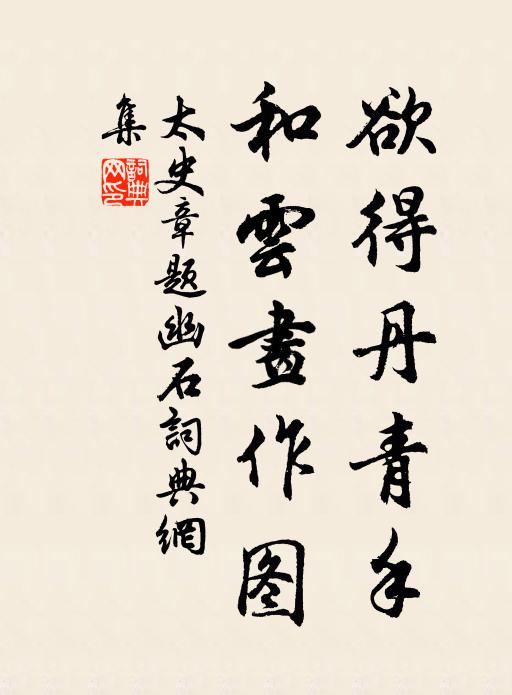 欲得丹青手
和雲畫作图
太史章題幽石詞典網
集
詞典
网印